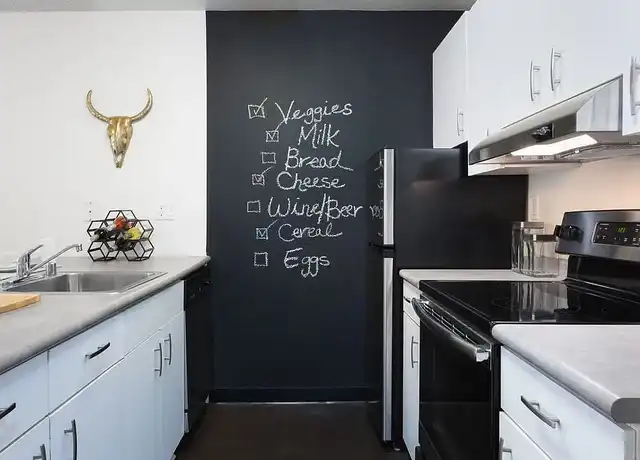 ☑ Veggies
☑ Milk
☐ Bread
☑ Cheese
☐ Wine/Beer
☑ Cereal
☐ Eggs